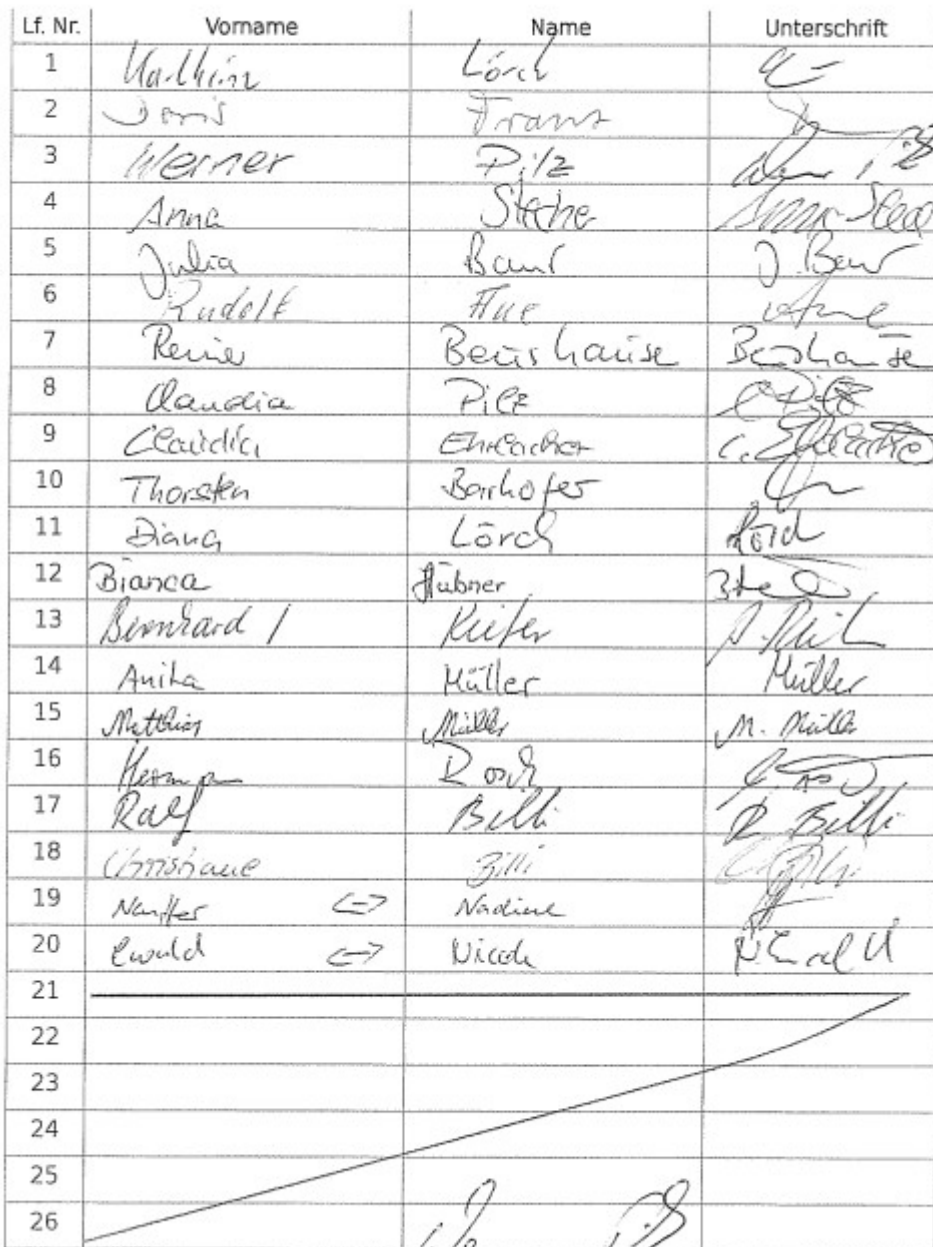 Lf. Nr. Vorname Name Unterschrift
1 Kathrin Lörch
2 Doris Franz
3 Werner Pilz
4 Anna
5 Julia Baur J. Baur
6 Rudolf
7 Reiner Beushause Beushause
8 Claudia Pilz C Pilz
9 Claudia Ehrlacher C. Ehrlacher
10 Thorsten Barhofer
11 Diana Lörch Lörch
12 Bianca Hübner
13 Bernhard / Kiefer
14 Anita Müller Müller
15 Matthias Müller M. Müller
16 Hermann
17 Ralf Billi R Billi
18 Christiane Billi
19 <-> Nadine
20 Ewald <-> Nicole N. Ewald
21
22
23
24
25
26